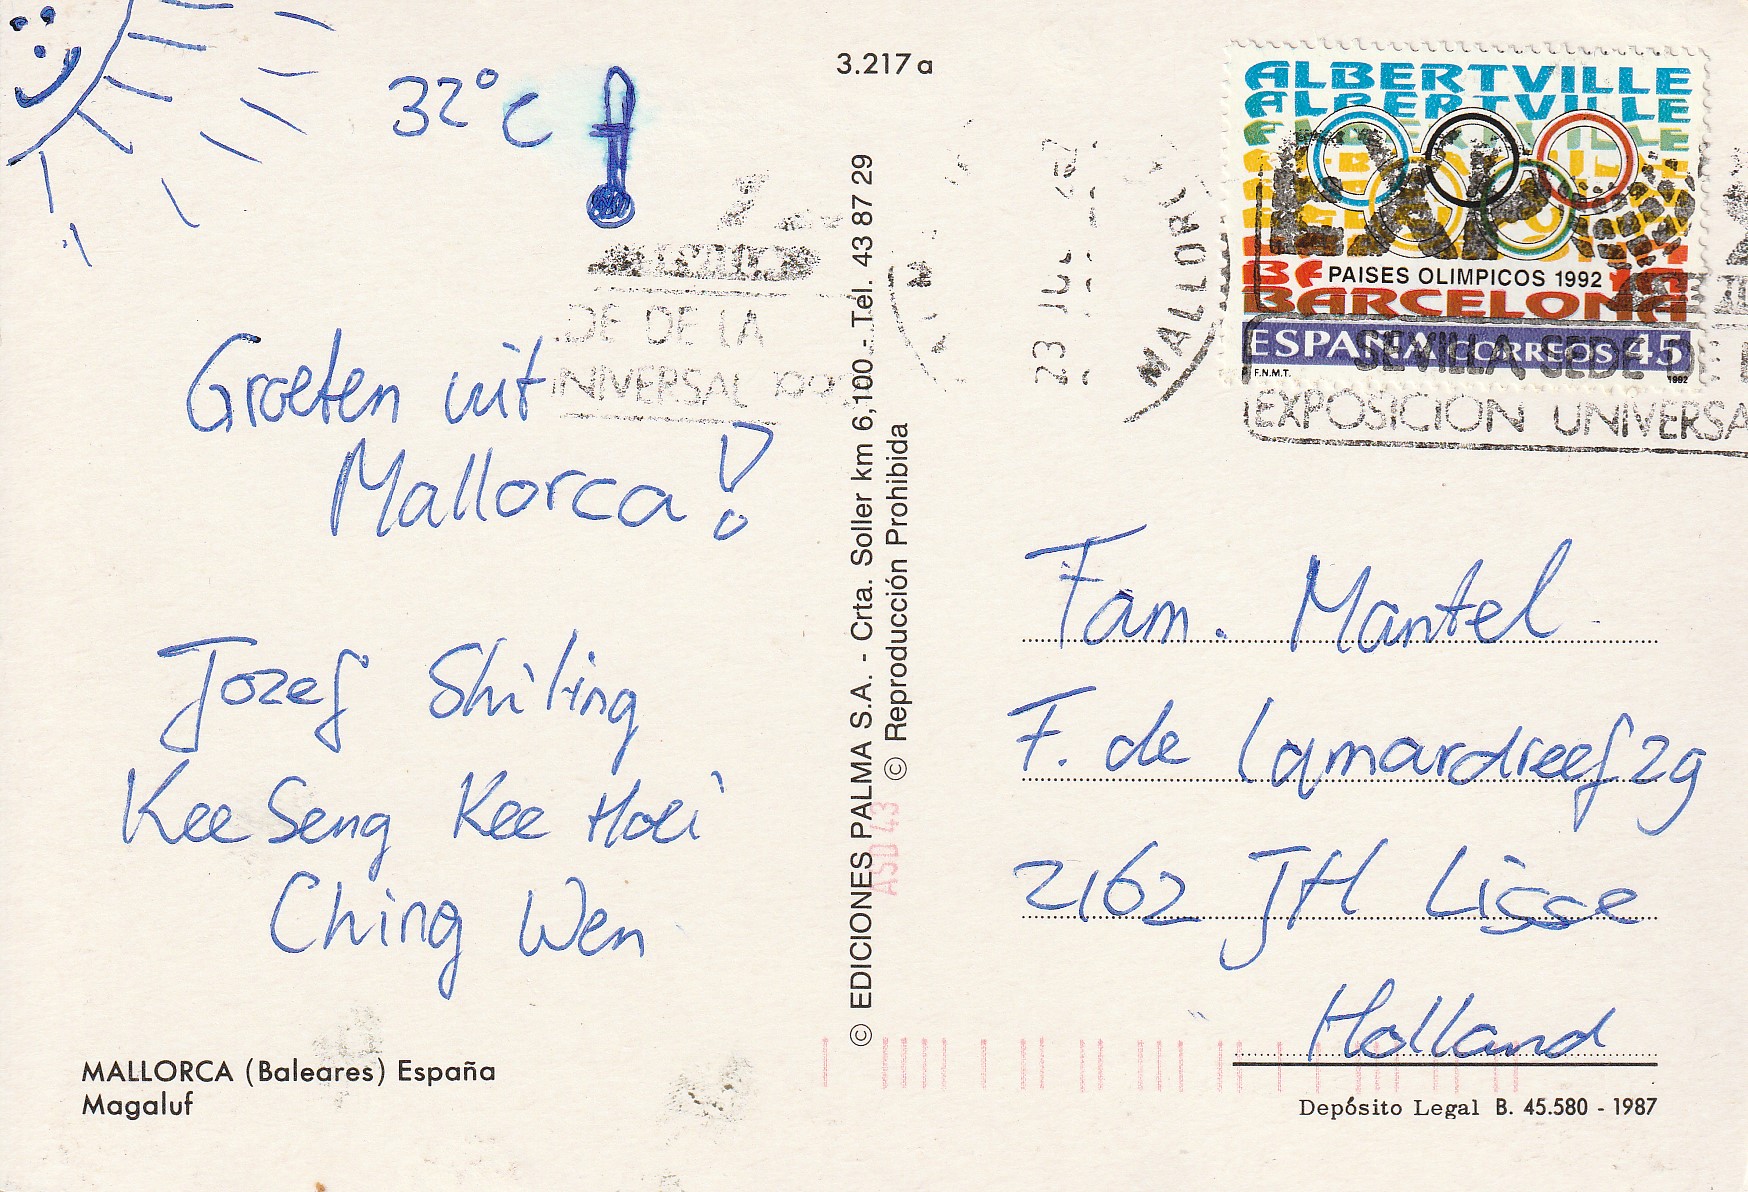 32°C
3.217 a
Groeten uit
Mallorca!
Jozef Shiling
Kee Seng Kee Hoei
Ching Wen
MALLORCA (Baleares) España
Magaluf
© EDICIONES PALMA S.A. - Crta. Soller km 6,100 - Tel. 43 87 29
© Reproducción Prohibida
ASD 43
DE DE LA
NIVERSAL 199
MALLOR
23 JUL
ALBERTVILLE
ALBERTVILLE
PAISES OLIMPICOS 1992
BARCELONA
ESPAÑA CORREOS 45
F.N.M.T. 1992
EXPO
SEVILLA SEDE DE L
EXPOSICION UNIVERSA
Fam. Mantel
F. de Lamardreef 29
2162 JH Lisse
Holland
Depósito Legal B. 45.580 - 1987